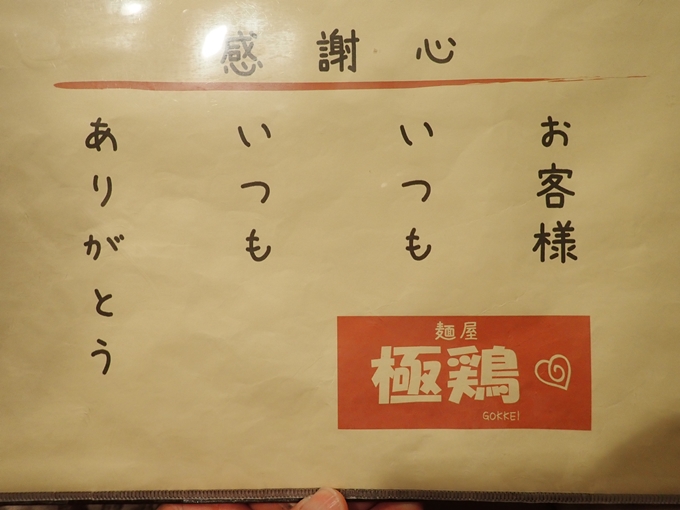 感謝心
お客様
いつも
いつも
ありがとう
麺屋
極鶏
GOKKEI